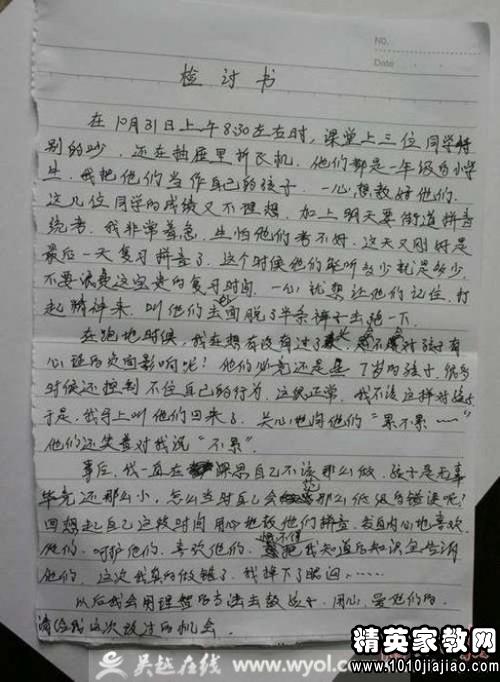 NO.
Date
检讨书
在10月31日上午8:30左右时,课堂上三位同学特
别的吵,还在抽屉里折飞机,他们都是一年级的小学
生,我把他们当作自己的孩子,一心想教好他们,
这几位同学的成绩又不理想,加上明天要街道拼音
统考,我非常着急,生怕他们考不好,这天又刚好是
最后一天复习拼音了,这个时候他们能听多少就是多少,
不要浪费这宝贵的复习时间,一心就想让他们记住,打
起精神来,叫他们去面脱了半条裤子去跑一下。
在跑地时候,我在想有没有过了 对孩子有
心理的负面影响呢?他们必竟还是 7岁的孩子,很多
时候还控制不住自己的行为,这很正常,我不该这样对孩子
于是,我马上叫他们回来了,关心地问他们“累不累……”
他们还笑着对我说“不累”。
事后,我一直在 深思自己不该那么做,孩子是无辜
毕竟还那么小,怎么当时自己会犯那么低级的错误呢?
回想起自己这段时间用心地教他们拼音,发自内心地喜欢
他们,呵护他们,喜欢他们,恨不得把我知道的知识全告诉
他们,这次我真的做错了,我掉下了眼泪……
以后我会用理智的方法去教孩子,用心,爱他们的,
请给我这次改过的机会。
吴越在线 www.wyol.com
精英家教网
www.1010jiajiao.com